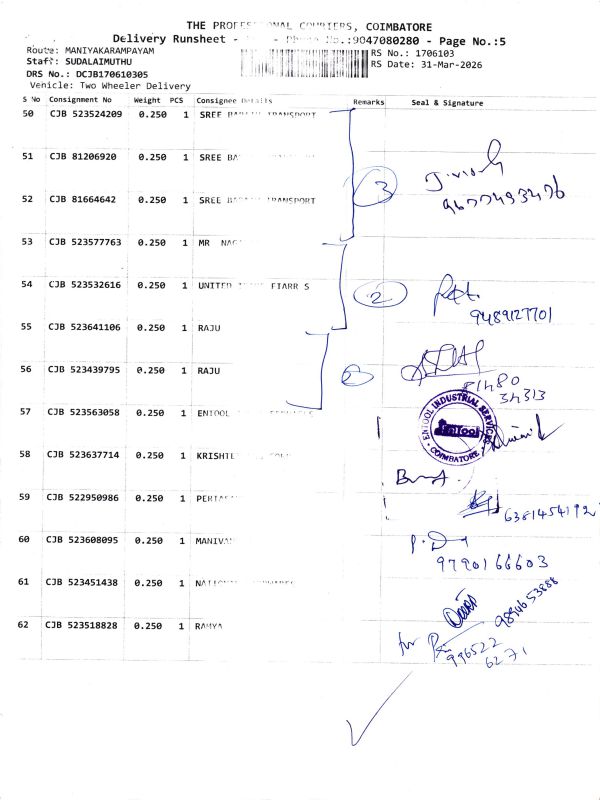 THE PROFESSIONAL COURIERS, COIMBATORE
Delivery Runsheet - No.:9047080280 - Page No.:5
Route: MANIYAKARAMPAYAM
RS No.: 1706103
Staff: SUDALAIMUTHU
RS Date: 31-Mar-2026
DRS No.: DCJB170610305
Vehicle: Two Wheeler Delivery
S No Consignment No Weight PCS Consignee Details Remarks Seal & Signature
50 CJB 523524209 0.250 1 SREE TRANSPORT
51 CJB 81206920 0.250 1 SREE
3
9677493476
52 CJB 81664642 0.250 1 SREE TRANSPORT
53 CJB 523577763 0.250 1 MR
54 CJB 523532616 0.250 1 UNITED S
2
9489127701
55 CJB 523641106 0.250 1 RAJU
56 CJB 523439795 0.250 1 RAJU
2
81480
34313
57 CJB 523563058 0.250 1 ENTOOL
ENTOOL INDUSTRIAL SERVICES
EnTool
COIMBATORE
58 CJB 523637714 0.250 1
59 CJB 522950986 0.250 1
6381454192
60 CJB 523608095 0.250 1
9790166603
61 CJB 523451438 0.250 1
9894653888
62 CJB 523518828 0.250 1 RAMYA
996522
6271